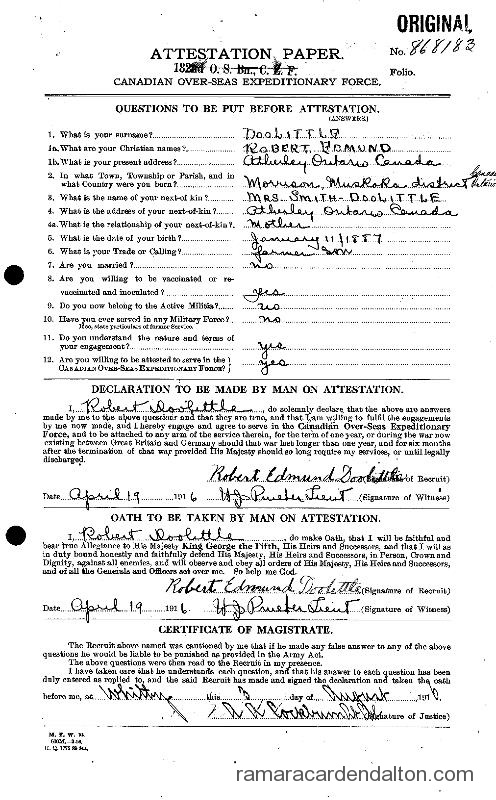 ORIGINAL
No. 868183
Folio.
ATTESTATION PAPER.
O. S. Bn., C. E. F.
CANADIAN OVER-SEAS EXPEDITIONARY FORCE.
QUESTIONS TO BE PUT BEFORE ATTESTATION.
(ANSWERS)
1. What is your surname? DOOLITTLE
1a. What are your Christian names? ROBERT EDMUND
1b. What is your present address? Atherley Ontario Canada
2. In what Town, Township or Parish, and in
what Country were you born? Morrison, Muskoka district
3. What is the name of your next-of kin? MRS. SMITH-DOOLITTLE
4. What is the address of your next-of-kin? Atherley Ontario Canada
4a. What is the relationship of your next-of-kin? Mother
5. What is the date of your birth? January 11/1887
6. What is your Trade or Calling? farmer son
7. Are you married? no
8. Are you willing to be vaccinated or re-
vaccinated and inoculated? yes
9. Do you now belong to the Active Militia? no
10. Have you ever served in any Military Force? no
If so, state particulars of former Service.
11. Do you understand the nature and terms of
your engagement? yes
12. Are you willing to be attested to serve in the
CANADIAN OVER-SEAS EXPEDITIONARY FORCE? yes
DECLARATION TO BE MADE BY MAN ON ATTESTATION.
I, Robert Doolittle, do solemnly declare that the above are answers
made by me to the above questions and that they are true, and that I am willing to fulfil the engagements
by me now made, and I hereby engage and agree to serve in the Canadian Over-Seas Expeditionary
Force, and to be attached to any arm of the service therein, for the term of one year, or during the war now
existing between Great Britain and Germany should that war last longer than one year, and for six months
after the termination of that war provided His Majesty should so long require my services, or until legally
discharged.
Robert Edmund Doolittle (Signature of Recruit)
Date April 19 1916 Lieut (Signature of Witness)
OATH TO BE TAKEN BY MAN ON ATTESTATION.
I, Robert Doolittle, do make Oath, that I will be faithful and
bear true Allegiance to His Majesty King George the Fifth, His Heirs and Successors, and that I will as
in duty bound honestly and faithfully defend His Majesty, His Heirs and Successors, in Person, Crown and
Dignity, against all enemies, and will observe and obey all orders of His Majesty, His Heirs and Successors,
and of all the Generals and Officers set over me. So help me God.
Robert Edmund Doolittle (Signature of Recruit)
Date April 19 1916 Lieut (Signature of Witness)
CERTIFICATE OF MAGISTRATE.
The Recruit above named was cautioned by me that if he made any false answer to any of the above
questions he would be liable to be punished as provided in the Army Act.
The above questions were then read to the Recruit in my presence.
I have taken care that he understands each question, and that his answer to each question has been
duly entered as replied to, and the said Recruit has made and signed the declaration and taken the oath
before me, at Whitby this 3 day of August 191
(Signature of Justice)
M. F. W. 23.
ramaracardendalton.com